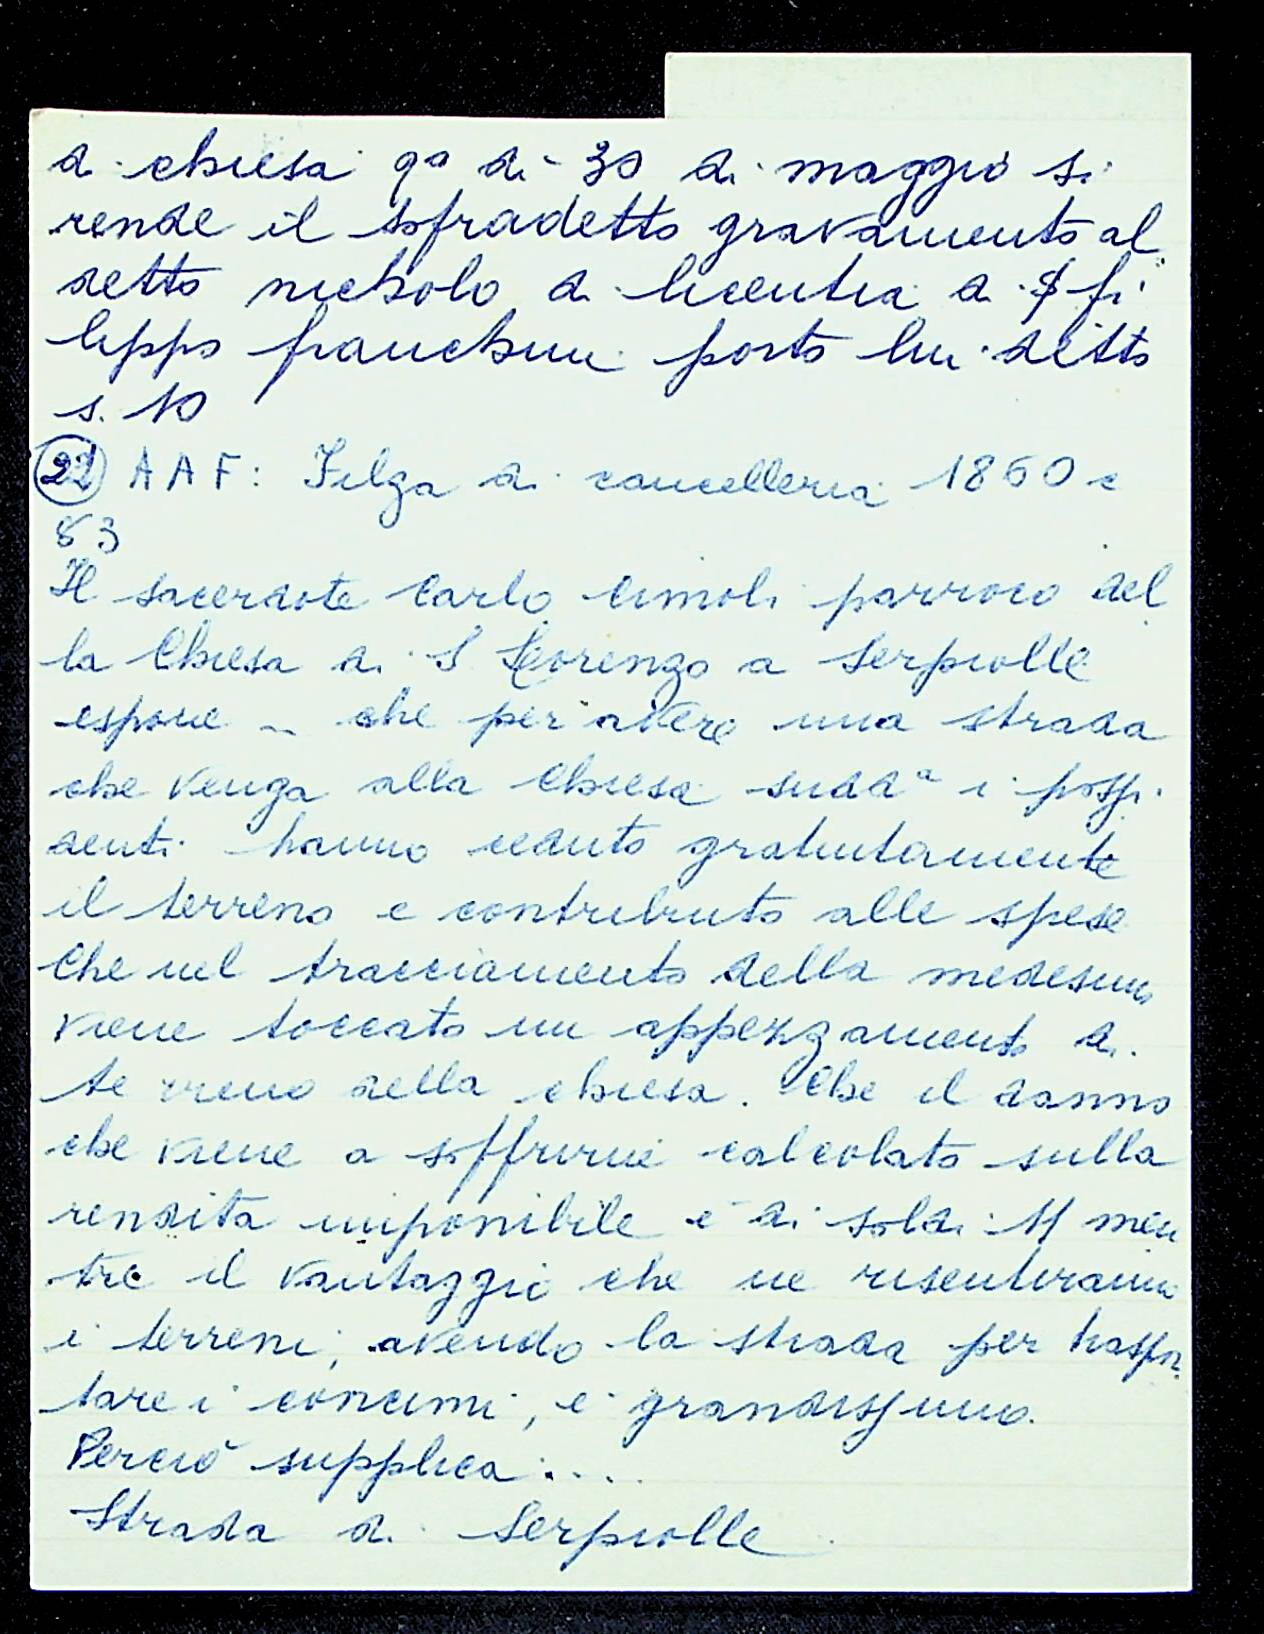 di chiesa q.o di 30 di maggio si
rende il sofradetto gravamento al
detto nicholo di licentia di S fi
lippo franchini porto lui ditto
s. 10
22 A A F: Filza di cancelleria 1860 c
83
Il sacerdote Carlo Cimoli parroco del
la Chiesa di S Lorenzo a Serpiolle
espone – che per avere una strada
che venga alla Chiesa sudd.a i possi
denti hanno ceduto gratuitamente
il terreno e contribuito alle spese
Che nel tracciamento della medesima
viene toccato un appezzamento di
terreno della chiesa. Che il danno
che viene a soffrirne calcolato sulla
rendita imponibile è di soldi 11 men
tre il vantaggio che ne risentiranno
i terreni, avendo la strada per traspor
tare i concimi, è grandissimo.
Perciò supplica....
Strada di Serpiolle